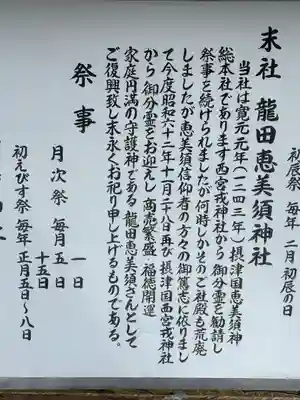 初辰祭　毎年　二月　初辰の日
末社　龍田恵美須神社
当社は寛元元年（一二四三年）摂津国恵美須神
総本社であります西宮戎神社から御分霊を勧請し
祭事を続けられましたが何時しかそのご社殿も荒廃
しましたが恵美須信仰者の方々の御篤志に依りまし
て今度昭和六十二年十一月二十八日再び摂津国西宮戎神社
から御分霊をお迎えし商売繁盛・福徳開運
家庭円満の守護神である龍田恵美須さんとして
ご復興致し末永くお祀り申し上げるものである。
祭事
月次祭　毎月　一日
五日
十五日
初えびす祭　毎年　正月五日～八日